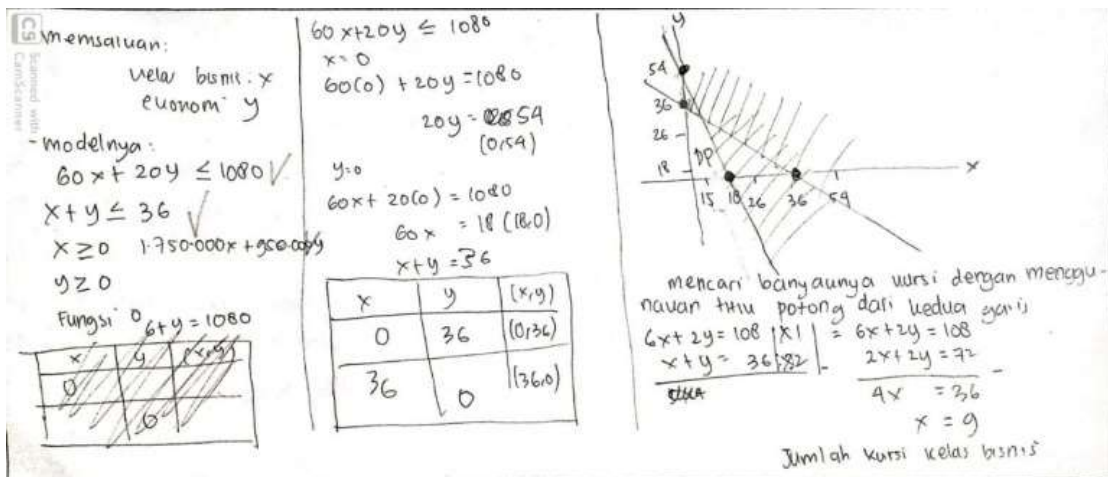 CS Scanned with CamScanner
memsaluan:
kelas bisnis: x
ekonomi y
- modelnya:
60x + 20y ≤ 1080 ✓
x + y ≤ 36 ✓
x ≥ 0 1.750.000x + 950.000y
y ≥ 0
Fungsi 0
6 + y = 1080
x y (x,y)
0
0
60x + 20y ≤ 1080
x = 0
60(0) + 20y = 1080
20y = 54
(0,54)
y = 0
60x + 20(0) = 1080
60x = 18 (18,0)
x + y = 36
x y (x,y)
0 36 (0,36)
36 0 (36,0)
y
54
36
26
18 DP x
15 18 26 36 54
mencari banyaknya kursi dengan menggu-
nakan titik potong dari kedua garis
6x + 2y = 108 |x1| = 6x + 2y = 108
x + y = 36 |x2| - 2x + 2y = 72 -
4x = 36
x = 9
Jumlah kursi kelas bisnis